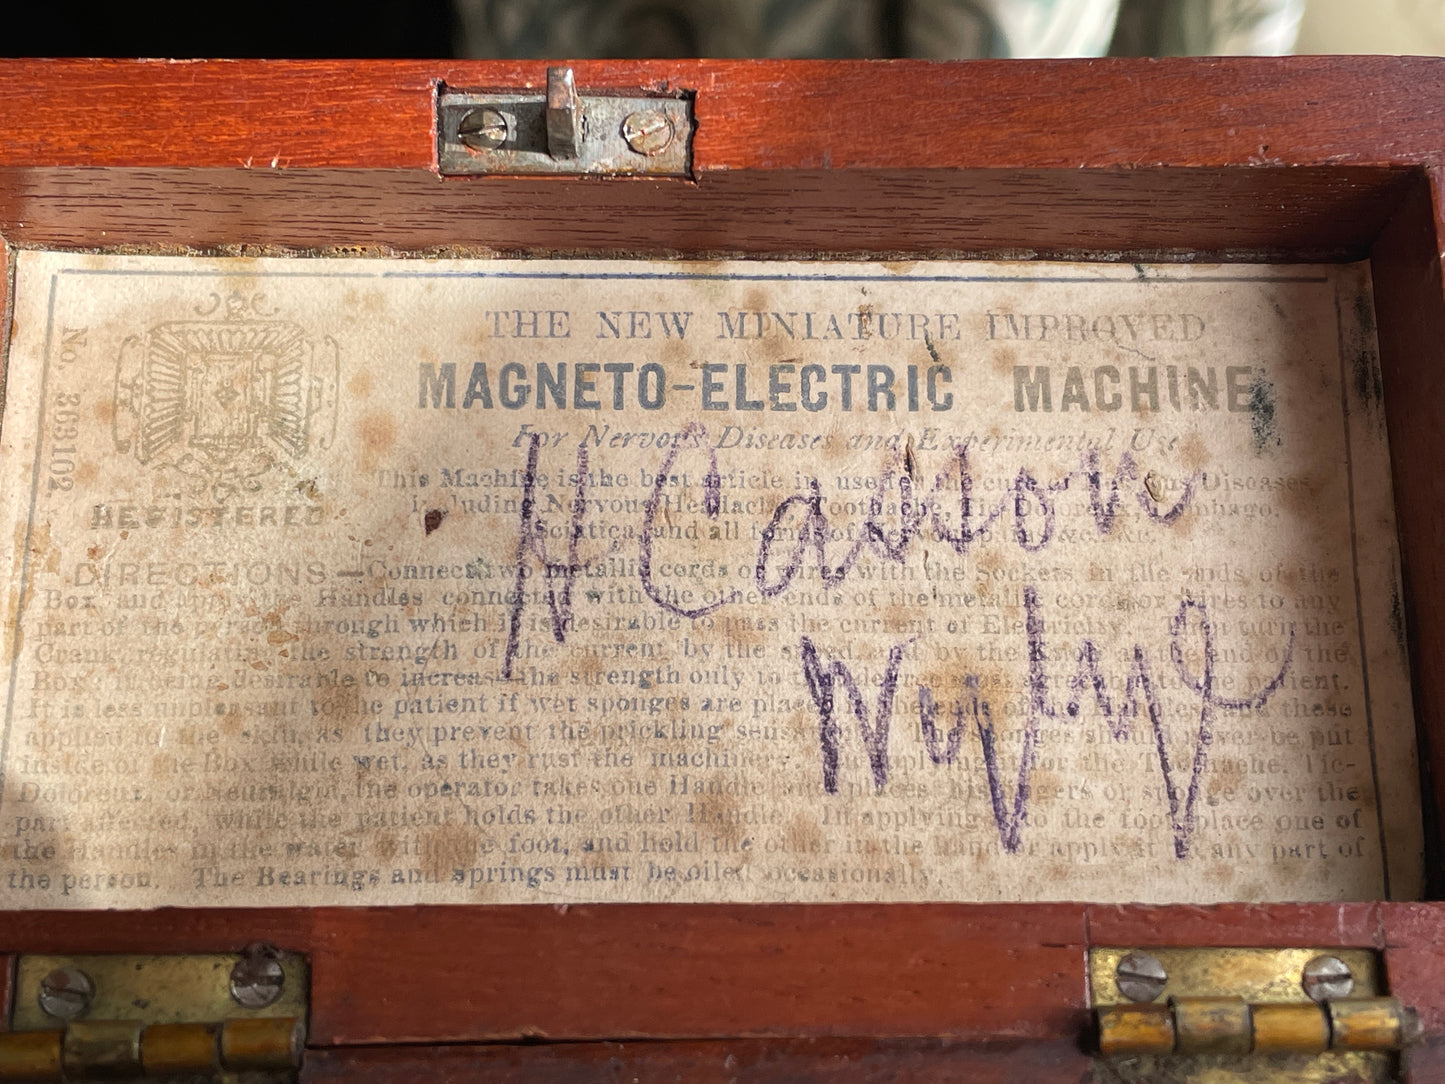 No. 363102
REGISTERED
THE NEW MINIATURE IMPROVED
MAGNETO-ELECTRIC MACHINE
For Nervous Diseases and Experimental Use
This Machine is the best article in use for the cure of Nervous Diseases
including Nervous Headache, Toothache, Tic-Doloreux, Lumbago,
Sciatica, and all forms of Nervous pains, &c. &c.
DIRECTIONS.—Connect two metallic cords or wires with the Sockets in the ends of the
Box, and apply the Handles connected with the other ends of the metallic cords or wires to any
part of the person through which it is desirable to pass the current of Electricity. Then turn the
Crank, regulating the strength of the current by the speed, and by the Knob at the end of the
Box; it being desirable to increase the strength only to the degree most agreeable to the patient.
It is less unpleasant to the patient if wet sponges are placed in the ends of the Handles, and these
applied to the skin, as they prevent the prickling sensation. The sponges should never be put
inside of the Box while wet, as they rust the machinery. In applying it for the Toothache, Tic-
Doloreux, or Neuralgia, the operator takes one Handle and places his fingers or sponge over the
part affected, while the patient holds the other Handle. In applying it to the foot, place one of
the Handles in the water with the foot, and hold the other in the hand or apply it to any part of
the person. The Bearings and springs must be oiled occasionally.
H Casson